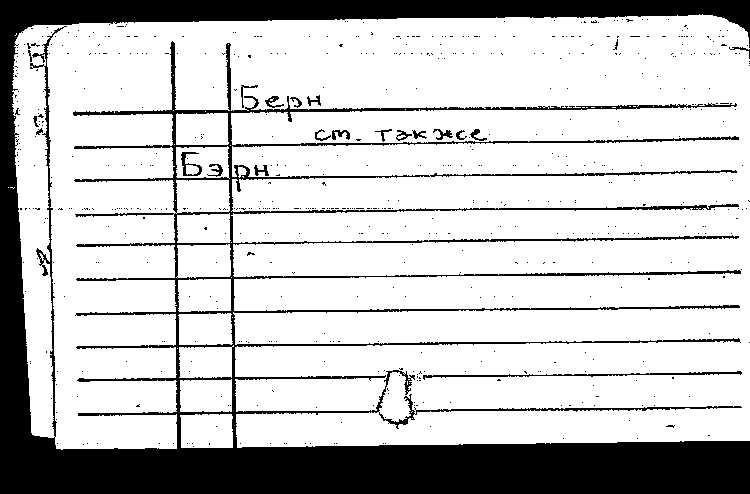 Берн
см. также
Бэрн